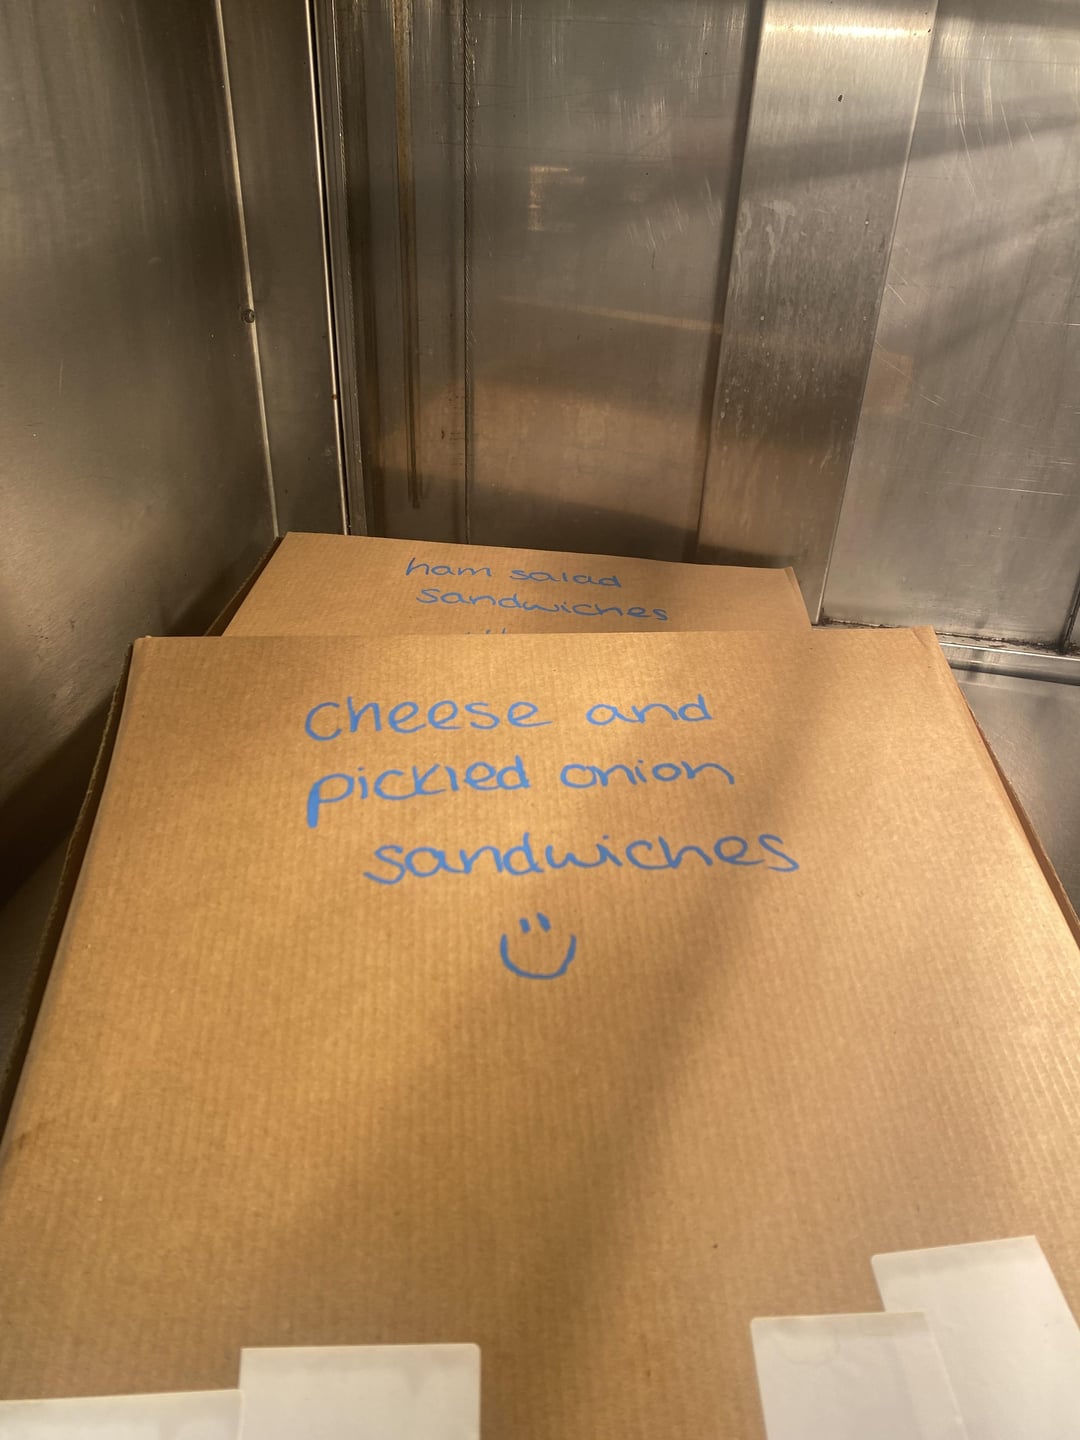 ham salad
sandwiches
cheese and
pickled onion
sandwiches